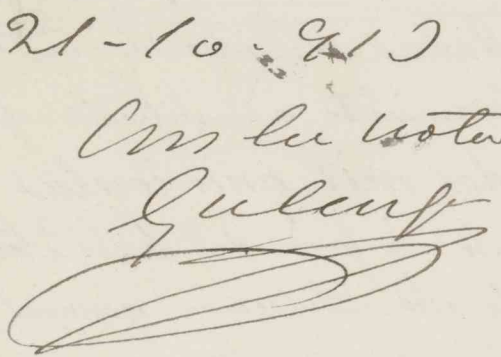 21-10-913
Con la nota